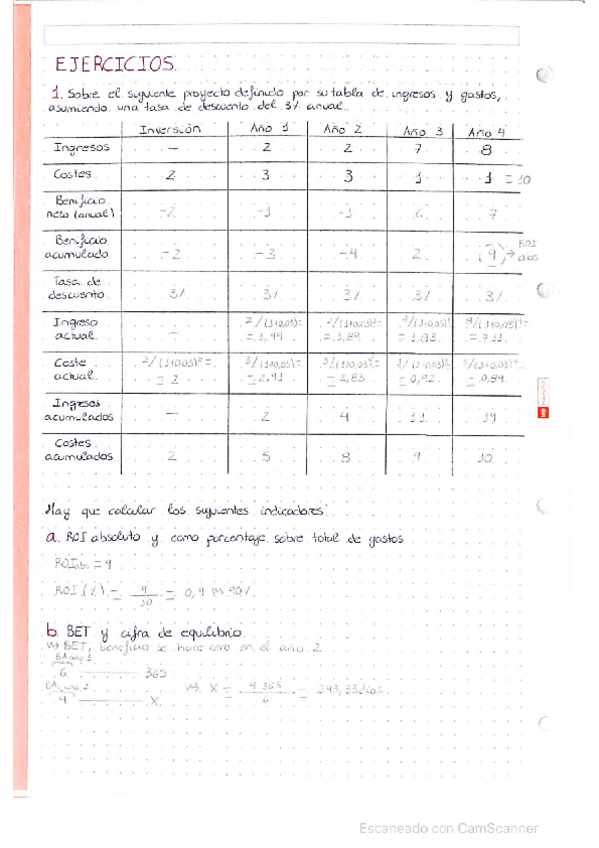 EJERCICIOS.
1. Sobre el siguiente proyecto definido por su tabla de ingresos y gastos,
asumiendo una tasa de descuento del 3% anual.
Inversión Año 1 Año 2 Año 3 Año 4
Ingresos — 2 2 7 8
Costes 2 3 3 1 1 = 10
Beneficio
neto (anual) -2 -1 -1 6 7
Beneficio
acumulado -2 -3 -4 2 (9) → ROI abs
Tasa de
descuento 3% 3% 3% 3% 3%
Ingreso
actual — 2/(1+0,03)= = 1,94
Coste
actual 2/(1+0,03)⁰= = 2 3/(1+0,03)= = 2,91 = 2,83 = 0,92 = 0,89
Ingresos
acumulados — 2 4 11 19
Costes
acumulados 2 5 8 9 10
Hay que calcular los siguientes indicadores:
a. ROI absoluto y como porcentaje sobre total de gastos
ROI abs. = 9
ROI (%) = 9/10 = 0,9 → 90%
b. BET y cifra de equilibrio
→ BET, beneficio se hace cero en el año 2
BA año 3
6 365
BA año 2
4 X
→ X = 4·365/6 = 243,33 días
Escaneado con CamScanner